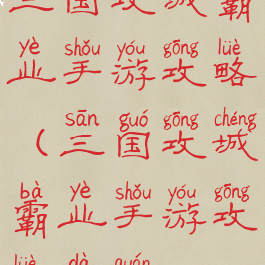 三国攻城霸
yè shǒu yóu gōng lüè
业手游攻略
sān guó gōng chéng
（三国攻城
bà yè shǒu yóu gōng
霸业手游攻
lüè dà quán